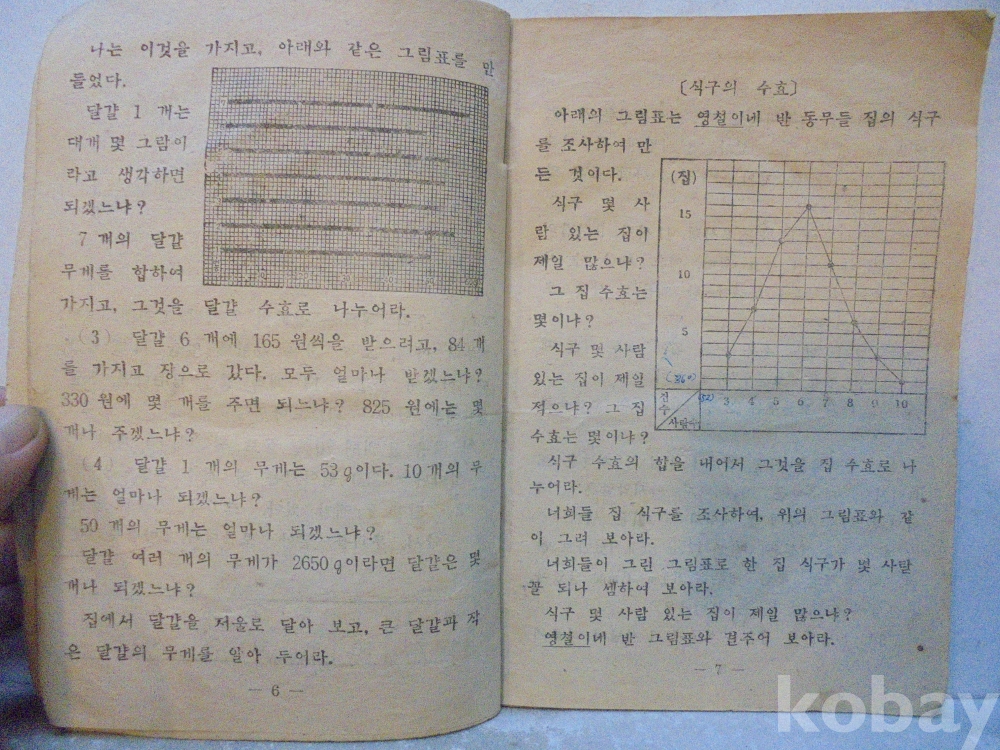 나는 이것을 가지고, 아래와 같은 그림표를 만
들었다.
달걀 1 개는
대개 몇 그람이
라고 생각하면
되겠느냐?
7 개의 달걀
무게를 합하여
가지고, 그것을 달걀 수효로 나누어라.
(3) 달걀 6 개에 165 원씩을 받으려고, 84 개
를 가지고 장으로 갔다. 모두 얼마나 받겠느냐?
330 원에 몇 개를 주면 되느냐? 825 원에는 몇
개나 주겠느냐?
(4) 달걀 1 개의 무게는 53g이다. 10 개의 무
게는 얼마나 되겠느냐?
50 개의 무게는 얼마나 되겠느냐?
달걀 여러 개의 무게가 2650g이라면 달걀은 몇
개나 되겠느냐?
집에서 달걀을 저울로 달아 보고, 큰 달걀과 작
은 달걀의 무게를 알아 두어라.
— 6 —
〔식구의 수효〕
아래의 그림표는 영철이네 반 동무들 집의 식구
를 조사하여 만
든 것이다.
식구 몇 사
람 있는 집이
제일 많으냐?
그 집 수효는
몇이냐?
식구 몇 사람
있는 집이 제일
적으냐? 그 집
수효는 몇이냐?
(집)
15
10
5
집수
사람수
3 4 5 6 7 8 9 10
식구 수효의 합을 내어서 그것을 집 수효로 나
누어라.
너희들 집 식구를 조사하여, 위의 그림표와 같
이 그려 보아라.
너희들이 그린 그림표로 한 집 식구가 몇 사람
꼴 되나 셈하여 보아라.
식구 몇 사람 있는 집이 제일 많으냐?
영철이네 반 그림표와 견주어 보아라.
— 7 —
kobay